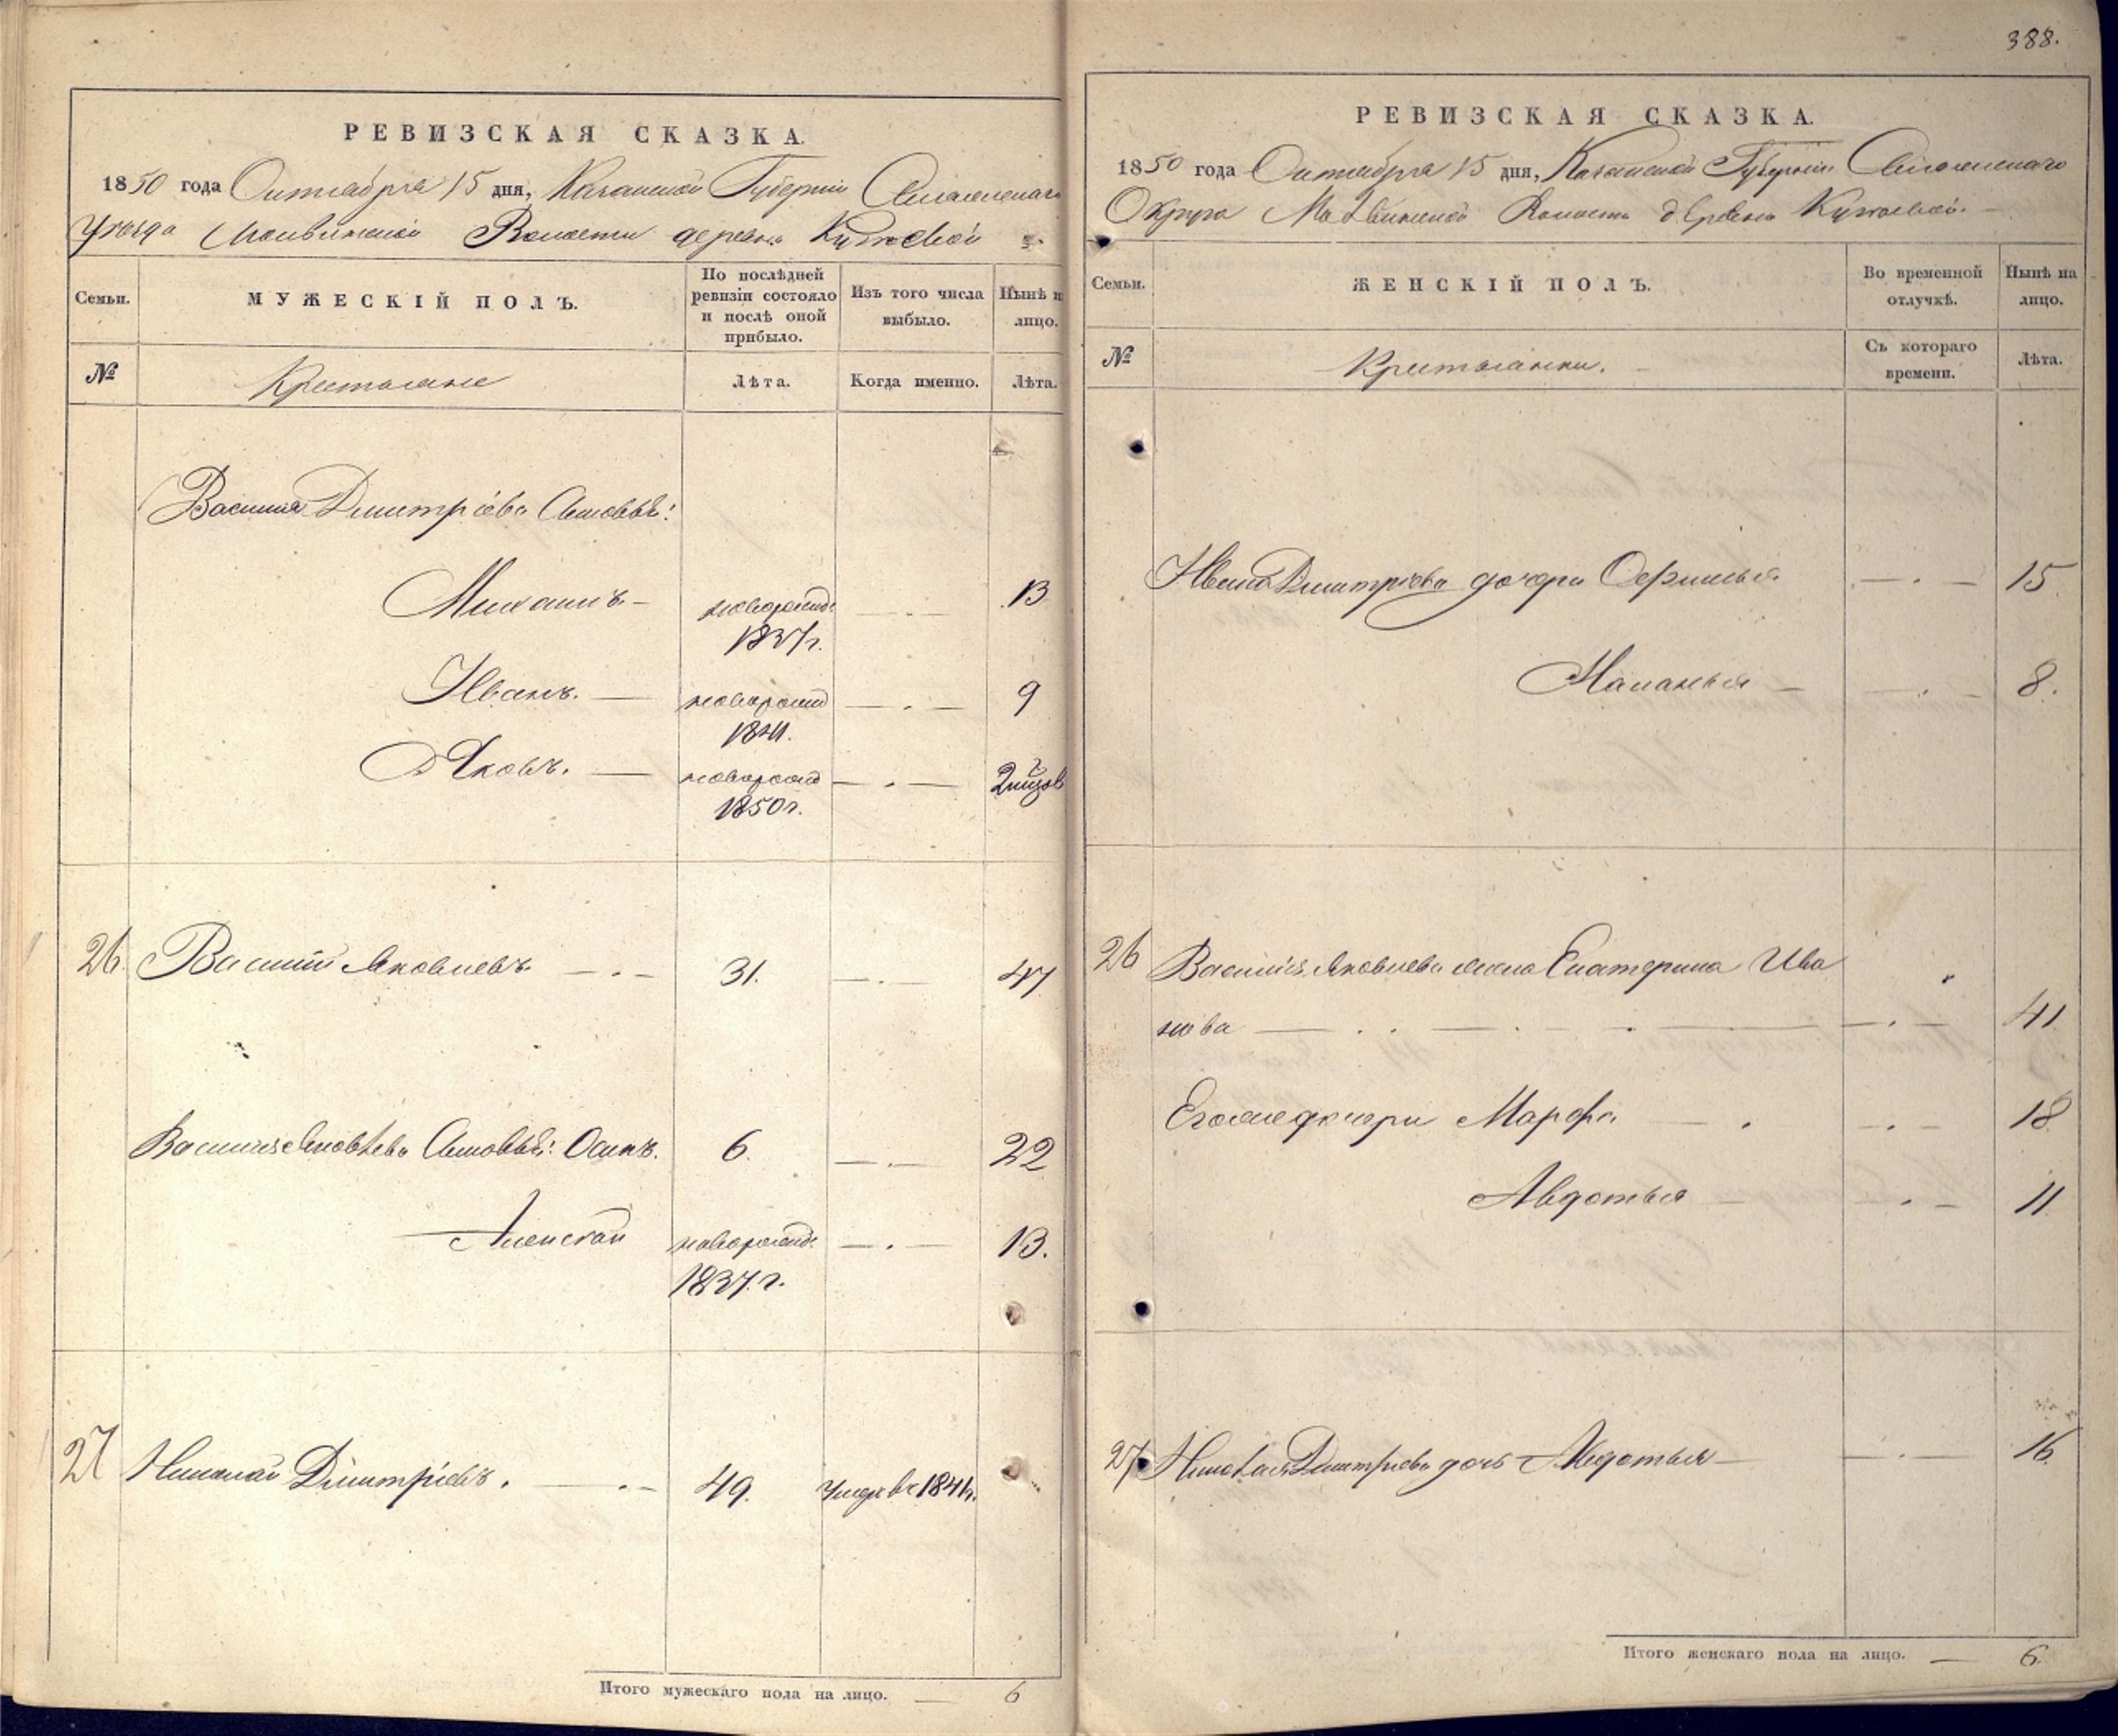 388.
РЕВИЗСКАЯ СКАЗКА.
1850 года Октября 15 дня, Казанской Губернии
Уезда Волости деревни
Семьи.
МУЖЕСКІЙ ПОЛЪ.
По послѣдней ревизіи состояло и послѣ оной прибыло.
Изъ того числа выбыло.
Нынѣ на лицо.
№
Крестьяне
Лѣта.
Когда именно.
Лѣта.
Василья Дмитріева сыновья:
Михаилъ – новорожд. 1837 г. 13
Иванъ. — новорожд 1841. 9
Яковъ. — новорожд 1850 г.
26 Василий Яковлевъ 31. 47
Василья Яковлева сыновья: Осипъ. 6. 22
Алексей новорожд. 1837. г. 13.
27 Николай Димитріевъ. 49. Умеръ в 1844 г.
Итого мужескаго пола на лицо. — 6
РЕВИЗСКАЯ СКАЗКА.
1850 года Октября 15 дня, Казанской Губернии
Округа Волости деревни
Семьи.
ЖЕНСКІЙ ПОЛЪ.
Во временной отлучкѣ.
Нынѣ на лицо.
№
Крестьянки.
Съ котораго времени.
Лѣта.
Ивана Дмитріева дочери 15
Маланья – 8.
26 Василья Яковлева жена Екатерина Ива
нова 41
Его же дочери Марфа 18
Авдотья 11
27 Николая Дмитріева дочь Авдотья 16
Итого женскаго пола на лицо. — 6.